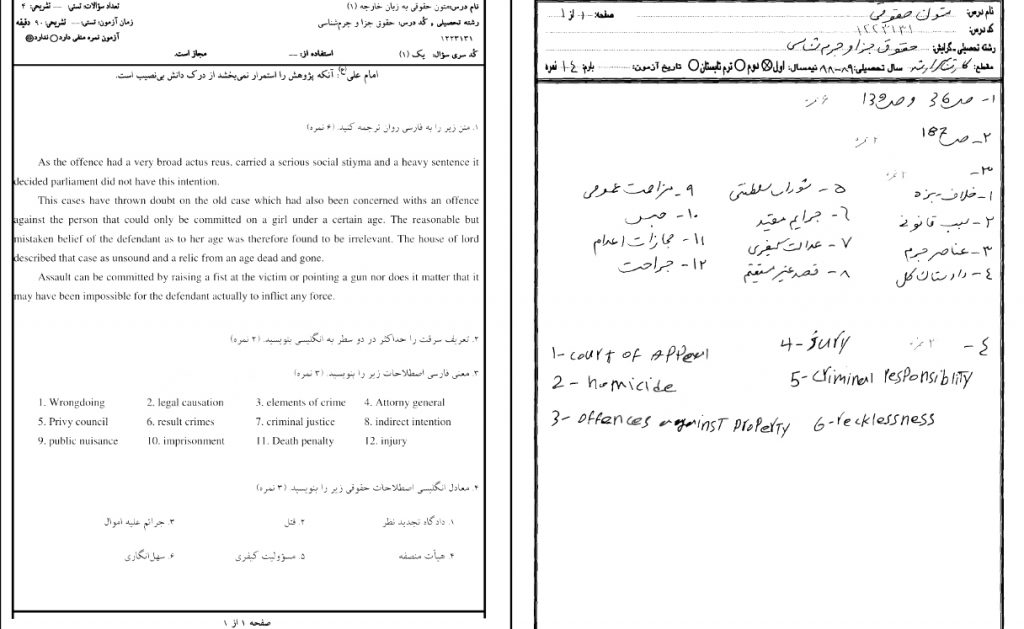 نام درس: متون حقوقی به زبان خارجه (۱)
رشته تحصیلی و کُد درس: حقوق جزا و جرم‌شناسی
۱۲۲۳۱۳۱
کُد سری سؤال: یک (۱)
استفاده از: ---
مجاز است.
تعداد سؤالات: تستی: --- تشریحی: ۴
زمان آزمون: تستی: -- تشریحی: ۹۰ دقیقه
آزمون نمره منفی دارد ندارد
امام علی(ع): آنکه پژوهش را استمرار نمی‌بخشد از درک دانش بی‌نصیب است.
۱. متن زیر را به فارسی روان ترجمه کنید. (۶ نمره)
As the offence had a very broad actus reus, carried a serious social stiyma and a heavy sentence it
decided parliament did not have this intention.
This cases have thrown doubt on the old case which had also been concerned withs an offence
against the person that could only be committed on a girl under a certain age. The reasonable but
mistaken belief of the defendant as to her age was therefore found to be irrelevant. The house of lord
described that case as unsound and a relic from an age dead and gone.
Assault can be committed by raising a fist at the victim or pointing a gun nor does it matter that it
may have been impossible for the defendant actually to inflict any force.
۲. تعریف سرقت را حداکثر در دو سطر به انگلیسی بنویسید. (۲ نمره)
۳. معنی فارسی اصطلاحات زیر را بنویسید. (۳ نمره)
1. Wrongdoing 2. legal causation 3. elements of crime 4. Attorny general
5. Privy council 6. result crimes 7. criminal justice 8. indirect intention
9. public nuisance 10. imprisonment 11. Death penalty 12. injury
۴. معادل انگلیسی اصطلاحات حقوقی زیر را بنویسید. (۳ نمره)
۱. دادگاه تجدید نظر ۲. قتل ۳. جرائم علیه اموال
۴. هیأت منصفه ۵. مسؤولیت کیفری ۶. سهل‌انگاری
صفحه ۱ از ۱
نام درس: متون حقوقی صفحه: ۱ از ۱
کد درس: ۱۲۲۳۱۳۱
رشته تحصیلی-گرایش: حقوق جزا و جرم شناسی
مقطع: کارشناسی ارشد سال تحصیلی: ۸۹-۸۸ نیمسال: اول دوم ترم تابستان تاریخ آزمون: بارم: ۱۴ نمره
۱- ص 36 و ص 139 ۶ نمره
۲- ص 187 ۲ نمره
۳- ۳ نمره
۱- خلاف، بزه ۵- شورای سلطنتی ۹- مزاحمت عمومی
۲- سبب قانونی ۶- جرایم مقید ۱۰- حبس
۳- عناصر جرم ۷- عدالت کیفری ۱۱- مجازات اعدام
۴- دادستان کل ۸- قصد غیر مستقیم ۱۲- جراحت
۴- ۳ نمره
1- court of Appeal 4- jury
2- homicide 5- criminal responsiblity
3- offences against property 6- recklessness